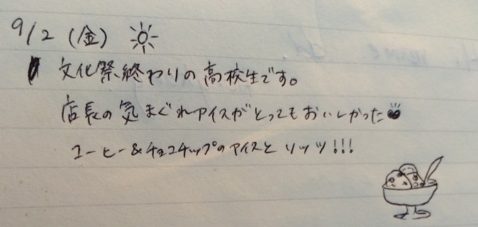 9/2 (金)
文化祭終わりの高校生です。
店長の気まぐれアイスがとってもおいしかった
コーヒー&チョコチップのアイスとリッツ!!!